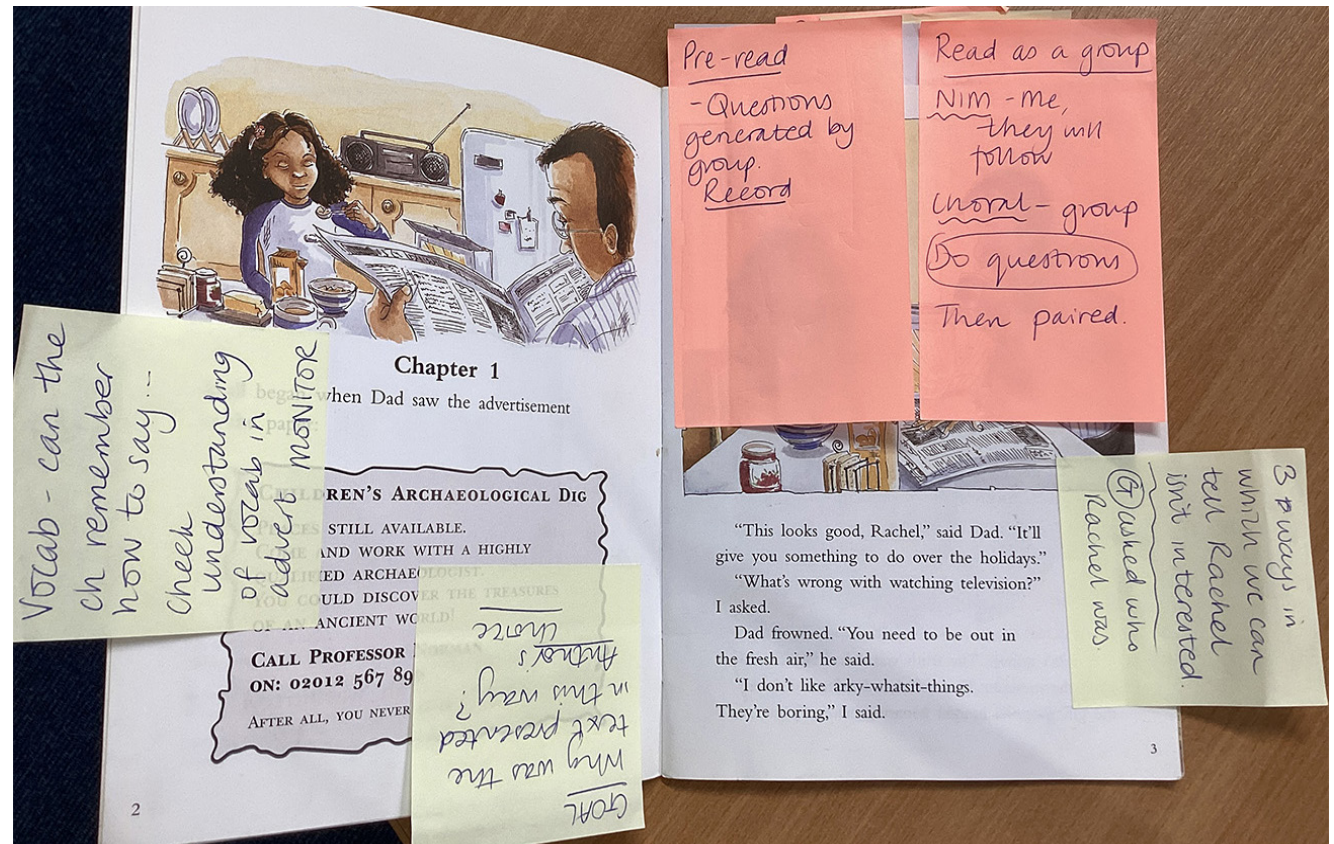 Chapter 1
began when Dad saw the advertisement
paper:
CHILDREN'S ARCHAEOLOGICAL DIG
PLACES STILL AVAILABLE.
COME AND WORK WITH A HIGHLY
QUALIFIED ARCHAEOLOGIST.
YOU COULD DISCOVER THE TREASURES
OF AN ANCIENT WORLD!
CALL PROFESSOR NORMAN
ON: 02012 567 89
AFTER ALL, YOU NEVER
2
Vocab - can the
ch remember
how to say...
Check
understanding
of vocab in
advert MONITOR
GOAL
Why was the
text presented
in this way?
Author's
choice
Pre-read
- Questions
generated by
group.
Record
Read as a group
NIM - me,
they will
follow
Choral - group
Do questions
Then paired.
"This looks good, Rachel," said Dad. "It'll
give you something to do over the holidays."
"What's wrong with watching television?"
I asked.
Dad frowned. "You need to be out in
the fresh air," he said.
"I don't like arky-whatsit-things.
They're boring," I said.
3
3 ways in
which we can
tell Rachel
isn't interested.
G asked who
Rachel was.